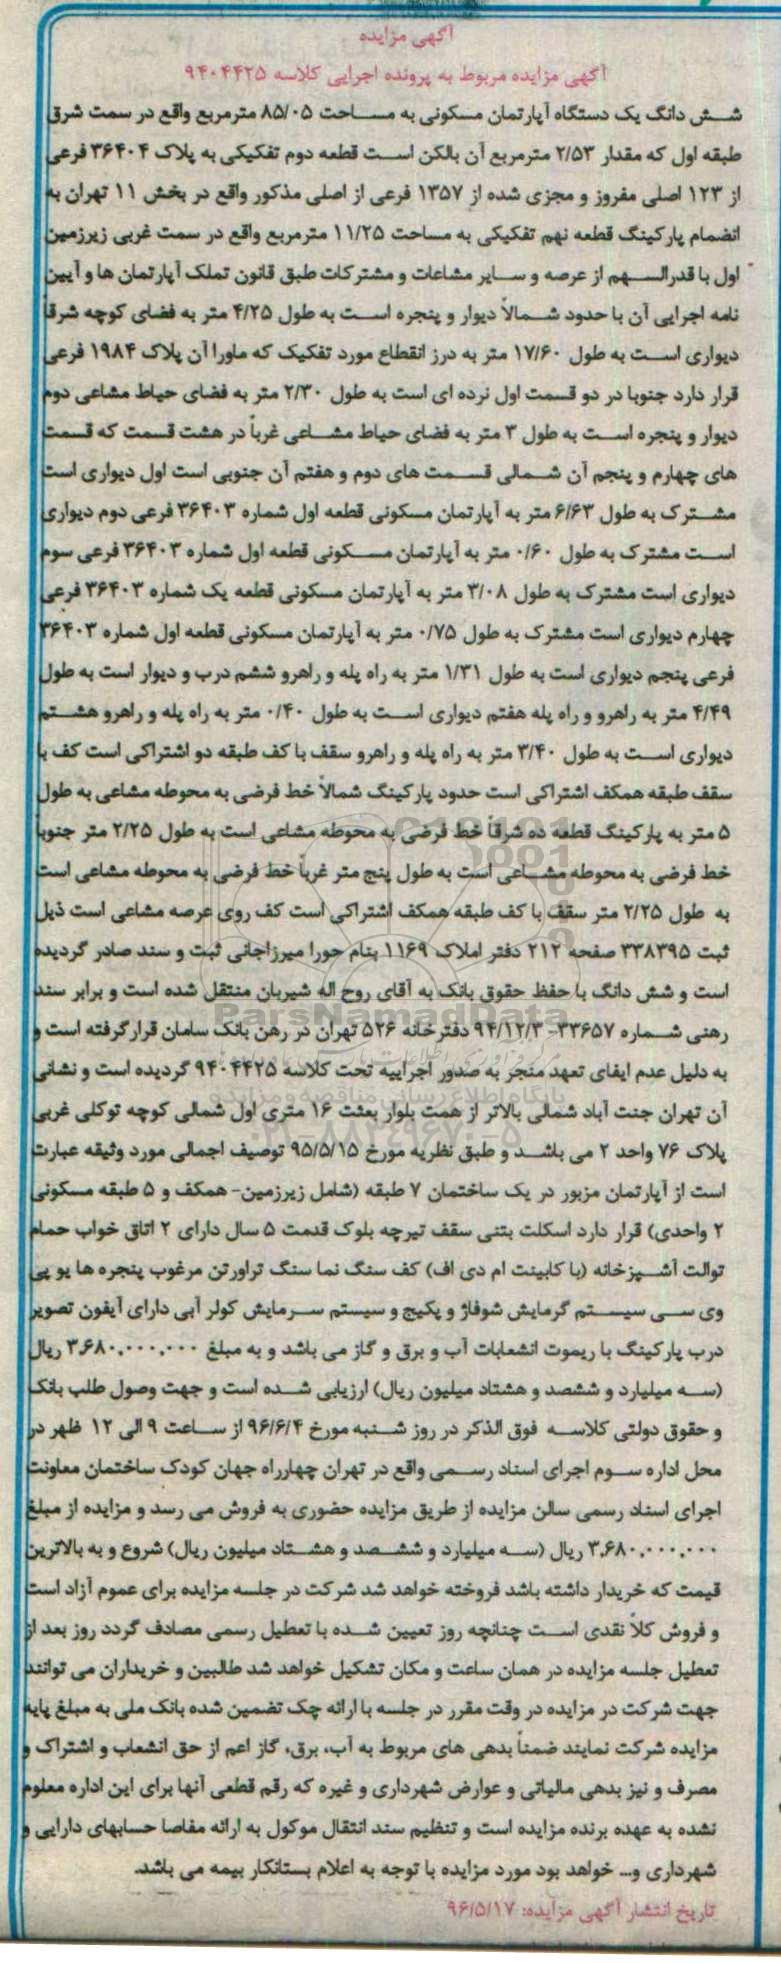 آگهی مزایده
آگهی مزایده مربوط به پرونده اجرایی کلاسه ۹۴۰۴۴۲۵
شش دانگ یک دستگاه آپارتمان مسکونی به مساحت ۸۵/۰۵ مترمربع واقع در سمت شرق
طبقه اول که مقدار ۲/۵۳ مترمربع آن بالکن است قطعه دوم تفکیکی به پلاک ۳۶۴۰۴ فرعی
از ۱۲۳ اصلی مفروز و مجزی شده از ۱۳۵۷ فرعی از اصلی مذکور واقع در بخش ۱۱ تهران به
انضمام پارکینگ قطعه نهم تفکیکی به مساحت ۱۱/۲۵ مترمربع واقع در سمت غربی زیرزمین
اول با قدرالسهم از عرصه و سایر مشاعات و مشترکات طبق قانون تملک آپارتمان ها و آیین
نامه اجرایی آن با حدود شمالاً دیوار و پنجره است به طول ۴/۲۵ متر به فضای کوچه شرقاً
دیواری است به طول ۱۷/۶۰ متر به درز انقطاع مورد تفکیک که ماورا آن پلاک ۱۹۸۴ فرعی
قرار دارد جنوبا در دو قسمت اول نرده ای است به طول ۲/۳۰ متر به فضای حیاط مشاعی دوم
دیوار و پنجره است به طول ۳ متر به فضای حیاط مشاعی غرباً در هشت قسمت که قسمت
های چهارم و پنجم آن شمالی قسمت های دوم و هفتم آن جنوبی است اول دیواری است
مشترک به طول ۶/۶۳ متر به آپارتمان مسکونی قطعه اول شماره ۳۶۴۰۳ فرعی دوم دیواری
است مشترک به طول ۰/۶۰ متر به آپارتمان مسکونی قطعه اول شماره ۳۶۴۰۳ فرعی سوم
دیواری است مشترک به طول ۳/۰۸ متر به آپارتمان مسکونی قطعه یک شماره ۳۶۴۰۳ فرعی
چهارم دیواری است مشترک به طول ۰/۷۵ متر به آپارتمان مسکونی قطعه اول شماره ۳۶۴۰۳
فرعی پنجم دیواری است به طول ۱/۳۱ متر به راه پله و راهرو ششم درب و دیوار است به طول
۴/۴۹ متر به راهرو و راه پله هفتم دیواری است به طول ۰/۴۰ متر به راه پله و راهرو هشتم
دیواری است به طول ۳/۴۰ متر به راه پله و راهرو سقف با کف طبقه دو اشتراکی است کف با
سقف طبقه همکف اشتراکی است حدود پارکینگ شمالاً خط فرضی به محوطه مشاعی به طول
۵ متر به پارکینگ قطعه ده شرقاً خط فرضی به محوطه مشاعی است به طول ۲/۲۵ متر جنوبا
خط فرضی به محوطه مشاعی است به طول پنج متر غرباً خط فرضی به محوطه مشاعی است
به طول ۲/۲۵ متر سقف با کف طبقه همکف اشتراکی است کف روی عرصه مشاعی است ذیل
ثبت ۳۳۸۳۹۵ صفحه ۲۱۲ دفتر املاک ۱۱۶۹ بنام حورا میرزاجانی ثبت و سند صادر گردیده
است و شش دانگ با حفظ حقوق بانک به آقای روح اله شیربان منتقل شده است و برابر سند
ParsNamadData
رهنی شماره ۳۳۶۵۷- ۹۴/۱۲/۳ دفترخانه ۵۲۶ تهران در رهن بانک سامان قرارگرفته است و
به دلیل عدم ایفای تعهد منجر به صدور اجراییه تحت کلاسه ۹۴۰۴۴۲۵ گردیده است و نشانی
پایگاه اطلاع رسانی مناقصه و مزایده
آن تهران جنت آباد شمالی بالاتر از همت بلوار بعثت ۱۶ متری اول شمالی کوچه توکلی غربی
۰۲۱-۸۸۳۴۹۶۷۰-۵
پلاک ۷۶ واحد ۲ می باشد و طبق نظریه مورخ ۹۵/۵/۱۵ توصیف اجمالی مورد وثیقه عبارت
است از آپارتمان مزبور در یک ساختمان ۷ طبقه (شامل زیرزمین- همکف و ۵ طبقه مسکونی
۲ واحدی) قرار دارد اسکلت بتنی سقف تیرچه بلوک قدمت ۵ سال دارای ۲ اتاق خواب حمام
توالت آشپزخانه (با کابینت ام دی اف) کف سنگ نما سنگ تراورتن مرغوب پنجره ها یو پی
وی سی سیستم گرمایش شوفاژ و پکیج و سیستم سرمایش کولر آبی دارای آیفون تصویر
درب پارکینگ با ریموت انشعابات آب و برق و گاز می باشد و به مبلغ ۳,۶۸۰,۰۰۰,۰۰۰ ریال
(سه میلیارد و ششصد و هشتاد میلیون ریال) ارزیابی شده است و جهت وصول طلب بانک
و حقوق دولتی کلاسه فوق الذکر در روز شنبه مورخ ۹۶/۶/۴ از ساعت ۹ الی ۱۲ ظهر در
محل اداره سوم اجرای اسناد رسمی واقع در تهران چهارراه جهان کودک ساختمان معاونت
اجرای اسناد رسمی سالن مزایده از طریق مزایده حضوری به فروش می رسد و مزایده از مبلغ
۳,۶۸۰,۰۰۰,۰۰۰ ریال (سه میلیارد و ششصد و هشتاد میلیون ریال) شروع و به بالاترین
قیمت که خریدار داشته باشد فروخته خواهد شد شرکت در جلسه مزایده برای عموم آزاد است
و فروش کلاً نقدی است چنانچه روز تعیین شده با تعطیل رسمی مصادف گردد روز بعد از
تعطیل جلسه مزایده در همان ساعت و مکان تشکیل خواهد شد طالبین و خریداران می توانند
جهت شرکت در مزایده در وقت مقرر در جلسه با ارائه چک تضمین شده بانک ملی به مبلغ پایه
مزایده شرکت نمایند ضمناً بدهی های مربوط به آب، برق، گاز اعم از حق انشعاب و اشتراک و
مصرف و نیز بدهی مالیاتی و عوارض شهرداری و غیره که رقم قطعی آنها برای این اداره معلوم
نشده به عهده برنده مزایده است و تنظیم سند انتقال موکول به ارائه مفاصا حسابهای دارایی و
شهرداری و... خواهد بود مورد مزایده با توجه به اعلام بستانکار بیمه می باشد.
تاریخ انتشار آگهی مزایده: ۹۶/۵/۱۷